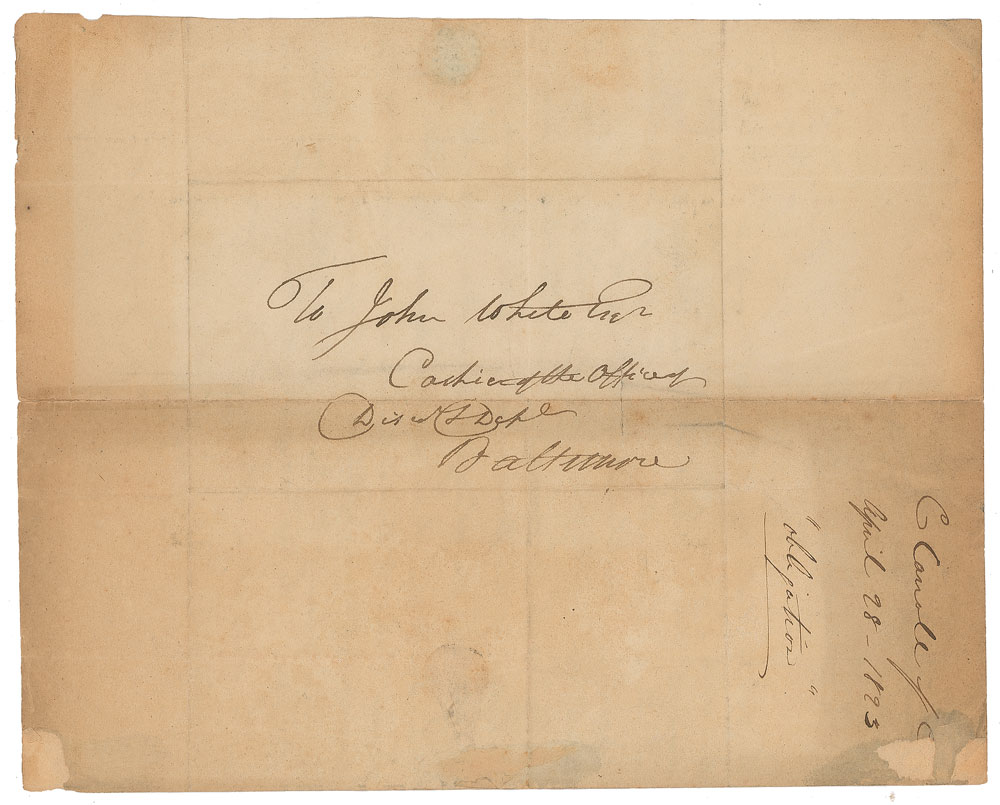 To John White Esqr
Cashier of the Office of
Disct & Depe
Baltimore
C Carroll of C
April 28 - 1823
"obligation"